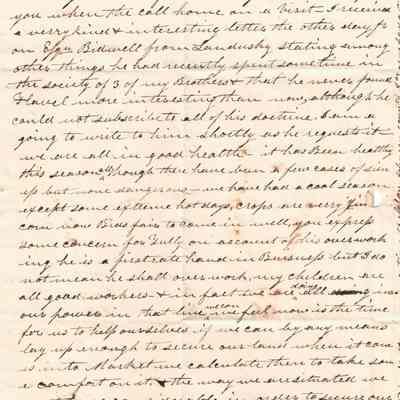 you when the call home on a visit I receive
a very kind & interesting letter the other day fr
om Elza Bidwell from Sandusky stating among
other things he had recently spent some time in
the society of 3 of my Brothers & that he never found
more interesting than now, although he
could not subscribe to all of his doctrine. I am a
going to write to him shortly as he requests it
we are all in good health it has been healthy
this season although there have been a few cases of sun
up but none dangerous - we have had a cool season
except some extreme hot days, crops are very fin
corn now Bids fair to come in well, you express
some concern for on account of his overwork
ing he is a first rate hand in Business but I do
not mean he shall over work, my children are
all good workers & in fact we are all doing in
our power in that line, we feel now is the time
for us to help ourselves if we can by any means
lay up enough to secure our land when it com
es in to Market we calculate then to take som
e comfort on it, & the way we are situated we
in order to secure our